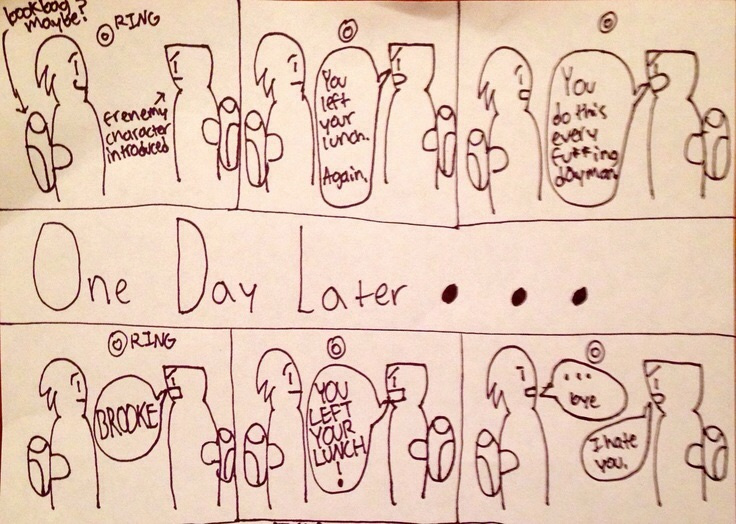 bookbag
maybe?
RING
frenemy
character
introduced
You
left
your
lunch.
Again.
You
do this
every
fu**ing
day man.
One Day Later . . .
RING
BROOKE
YOU
LEFT
YOUR
LUNCH
!
...
bye
I hate
you.